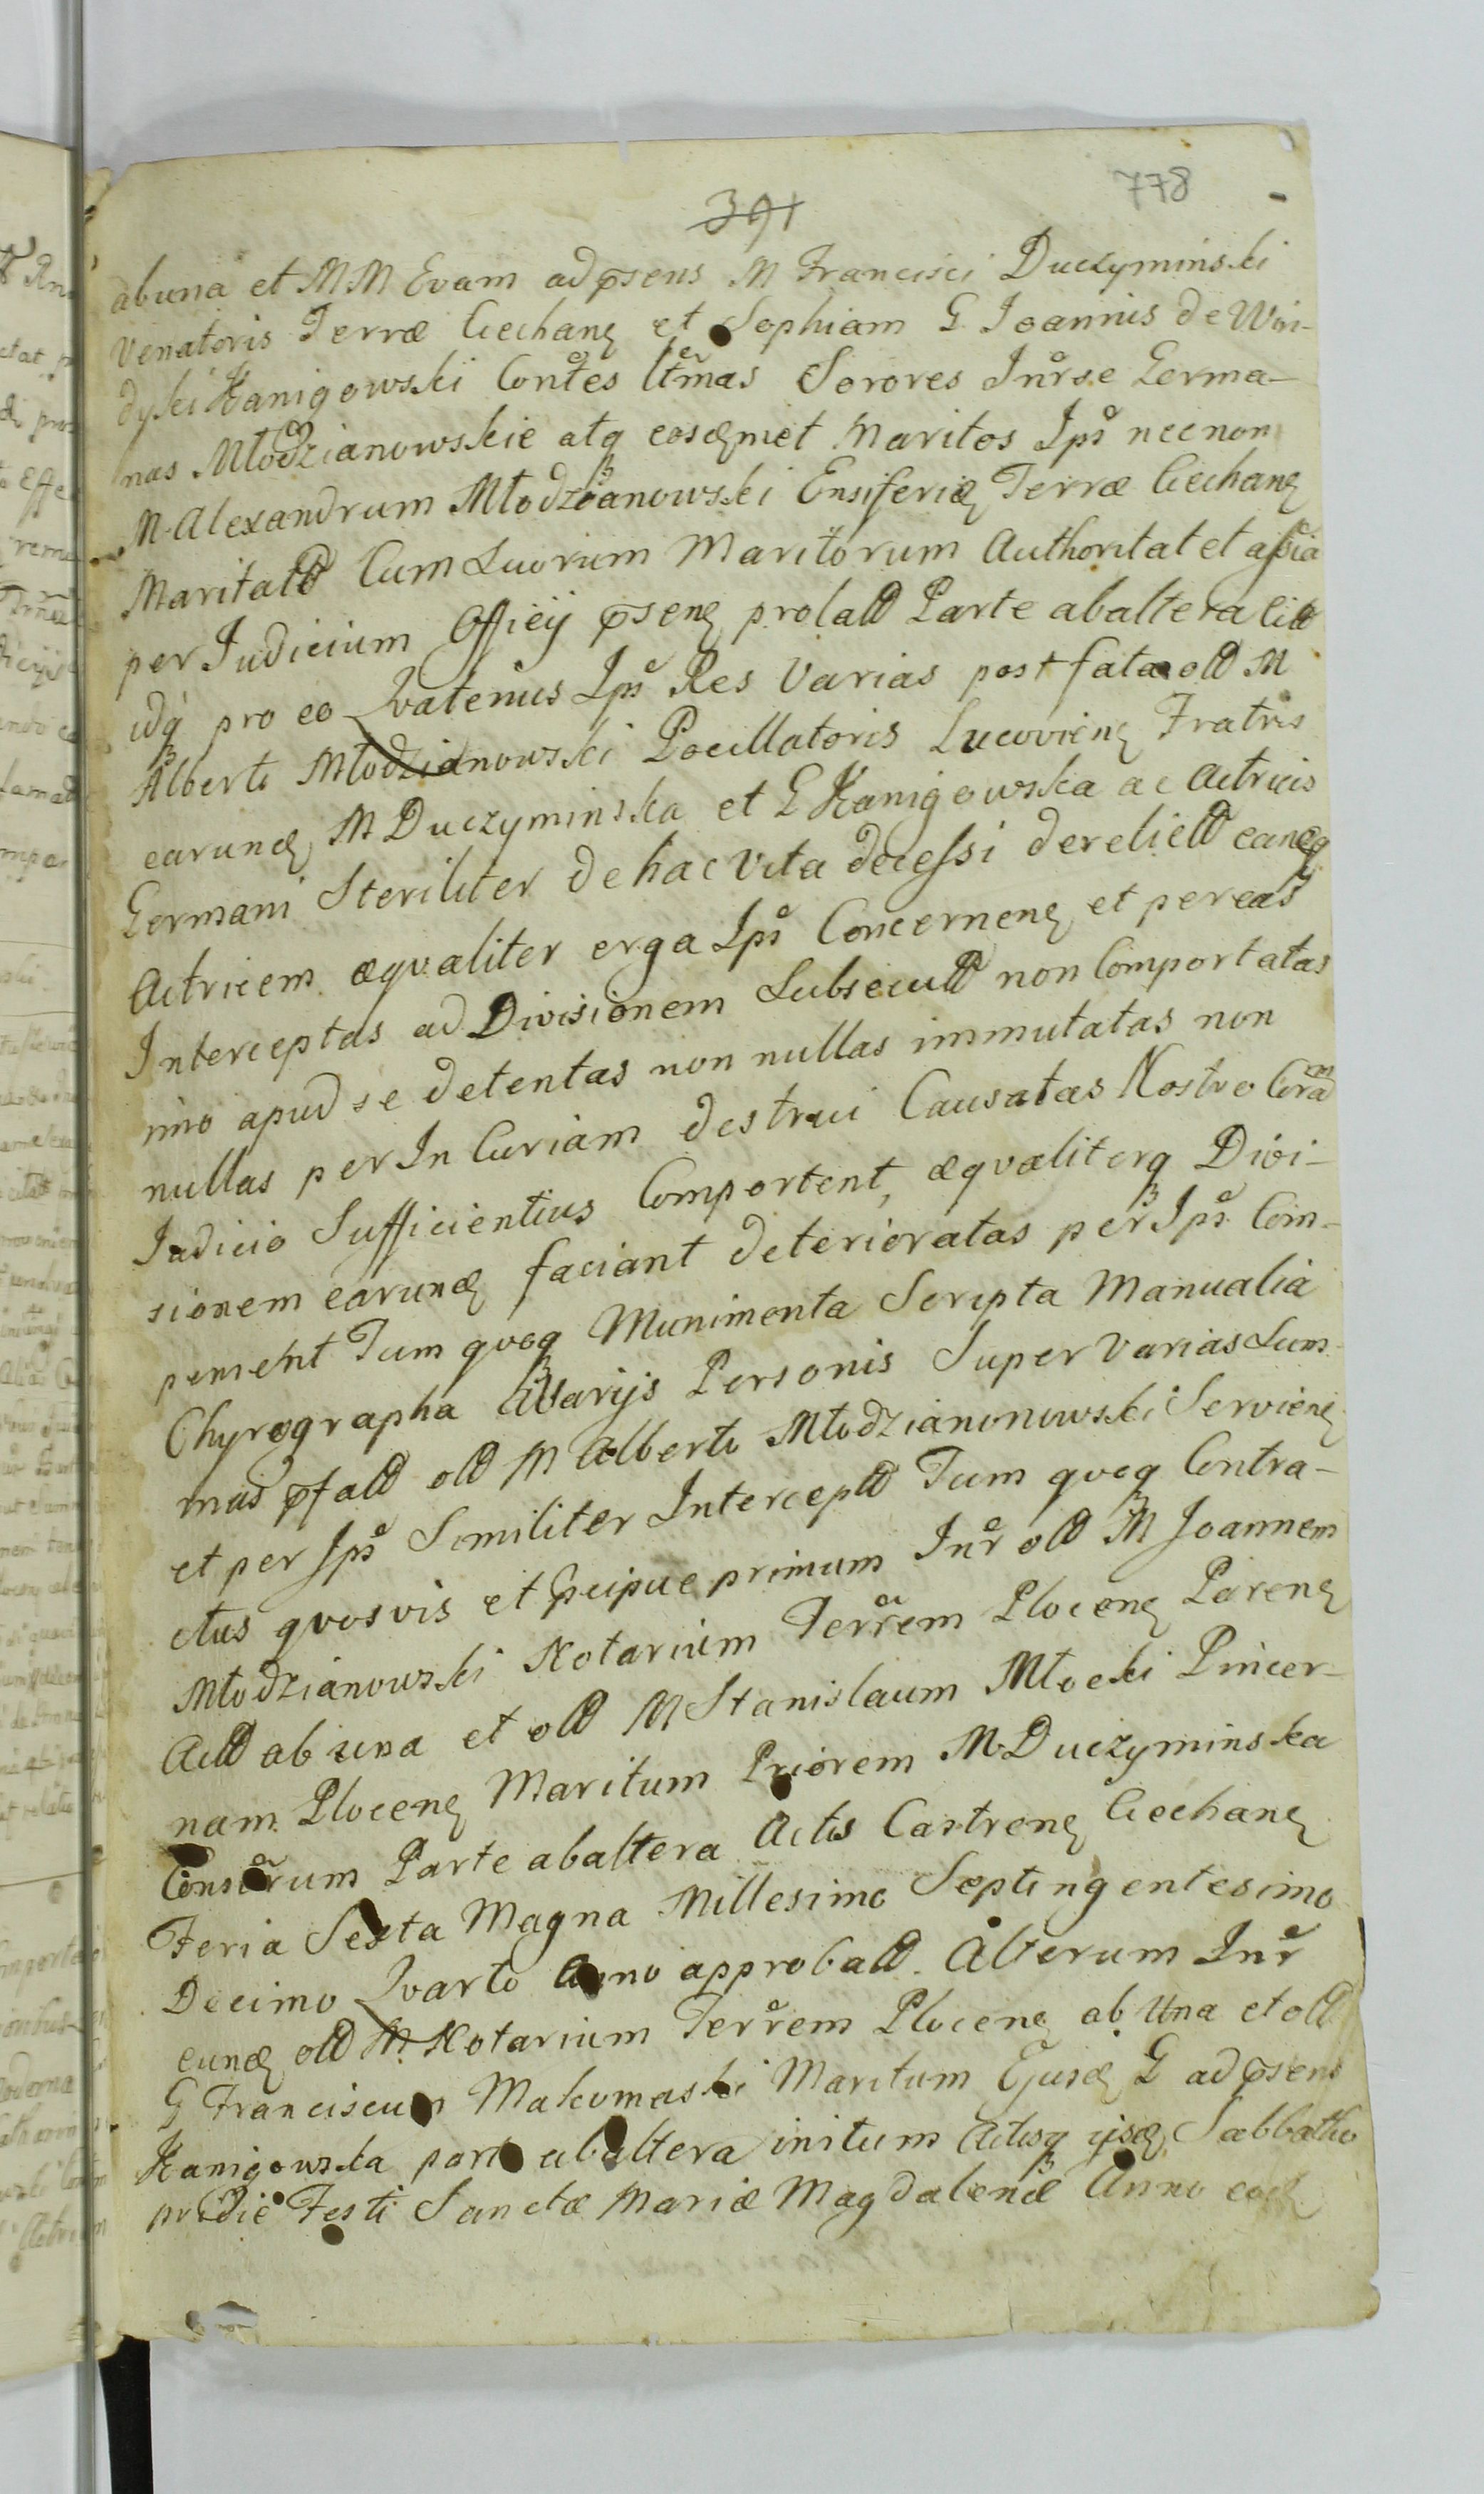 391
778
ab una et MM Evam ad p̃sens M Francisci Duczyminski
Venatoris Terræ Ciechanę et Sophiam G Joannis de Woi-
dyski Kanigowski Contes ltmas Sorores Inr se Germa-
nas Młodzianowskie atq eosdęmet Maritos Ips necnon
M Alexandrum Młodzianowski Ensiferię Terræ Ciechanę
Maritatt Cum Suorum Maritorum Authoritat et assia
per Judicium Officij p̃senę prolatt Parte ab altera citt
idq pro eo Qvatenus Ips Res Varias post fata ott M
Alberti Młodzianowski Pocillatoris Lucovienę Fratris
earundę M Duczyminska et G Kanigowska ac Actricis
Germani Steriliter de hac Vita decessi derelictt eandęq
Actricem æqvaliter erga Ips Concernenę et per eas
Interceptas ad Divisionem Subsecutt non Comportatas
imo apud se detentas non nullas immutatas non
nullas per In Curiam destrui Causatas Nostro Coram
Judicio Sufficientius Comportent, æqvaliterq Divi-
sionem earundę faciant deterioratas per Ips Com-
pensent Tum qvoq Munimenta Scripta Manualia
Chyrographa a Varijs Personis Super Varias Sum-
mas p̃fatt ott M Alberto Młodzianonowski Servienę
et per Ips Similiter Interceptt Tum qvoq Contra-
ctus qvosvis et p̃cipue primum Inr ott M Joannem
Młodzianowski Notarium Terrem Plocenę Parenę
Actt ab una et ott M Stanislaum Młocki Pincer-
nam Plocenę Maritum Priorem M Duczyminska
Consorum Parte ab altera Actis Castrenę Ciechanę
Feria Sexta Magna Millesimo Septingentesimo
Decimo Qvarto Anno approbatt. Alterum Inr
eundę ott M Notarium Terrem Plocenę ab Una et ott
G Franciscum Makomaski Maritum Ejusdę G ad p̃sens
Kanigowska parte ab altera initum Actisq ijsdę Sabbatho
pridie Festi Sanctæ Mariæ Magdalenæ Anno eodę